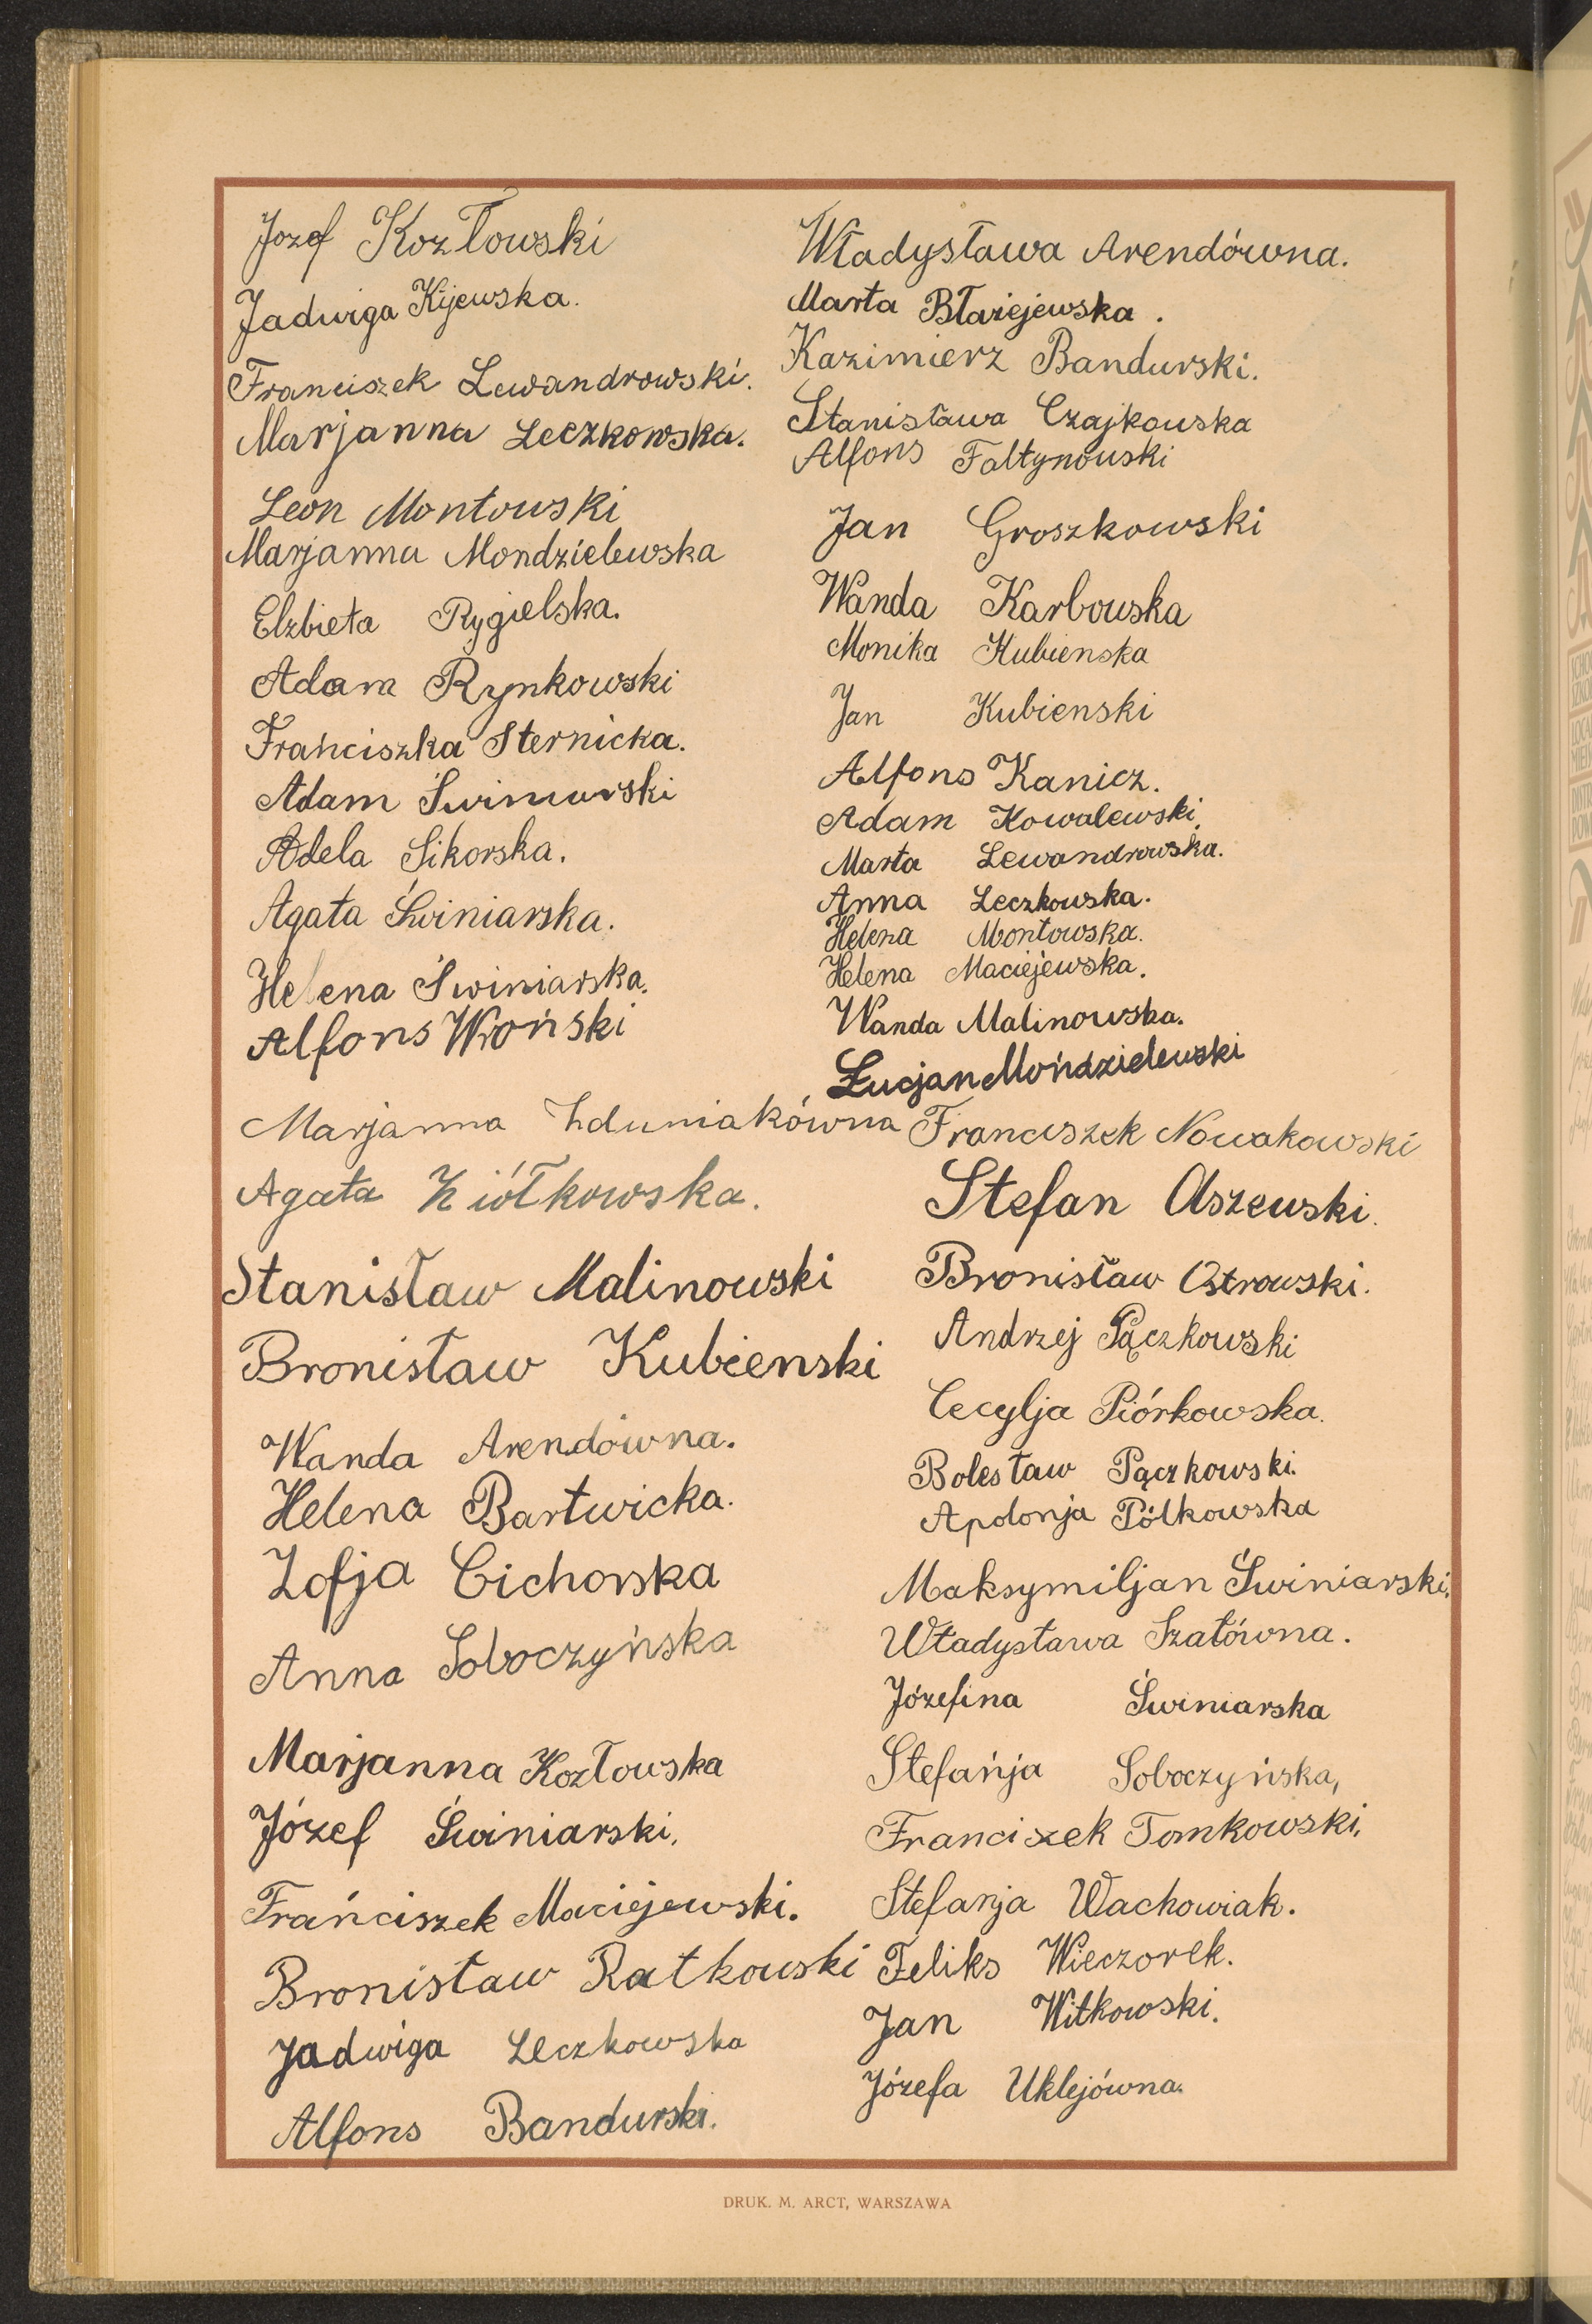 Jozef Kozłowski
Jadwiga Kijewska.
Franciszek Lewandrowski.
Marjanna Leczkowska.
Leon Montowski
Marjanna Mondzielewska
Elzbieta Rygielska.
Adam Rynkowski
Frańciszka Sternicka.
Adam Świniarski
Adela Sikorska.
Agata Świniarska.
Helena Świniarska.
Alfons Wroński
Marjanna Zduniakówna
Agata Ziółkowska.
Stanisław Malinowski
Bronisław Kubienski
Wanda Arendówna.
Helena Bartwicka.
Zofja Cichorska
Anna Soboczyńska
Marjanna Kozłowska
Józef Świniarski.
Frańciszek Maciejewski.
Bronisław Ratkowski
Jadwiga Leczkowska
Alfons Bandurski.
Władysława Arendówna.
Marta Błażejewska.
Kazimierz Bandurski.
Stanisława Czajkowska
Alfons Fałtynowski
Jan Groszkowski
Wanda Karbowska
Monika Kubienska
Jan Kubienski
Alfons Kanicz.
Adam Kowalewski.
Marta Lewandrowska.
Anna Leczkowska.
Helena Montowska.
Helena Maciejewska.
Wanda Malinowska.
Łucjan Mońdzielewski
Franciszek Nowakowski
Stefan Olszewski.
Bronisław Ostrowski.
Andrzej Pączkowski
Cecylja Piórkowska.
Bolesław Pączkowski.
Apolonja Pólkowska
Maksymiljan Świniarski.
Władysława Szałówna.
Józefina Świniarska
Stefańja Soboczyńska,
Franciszek Tomkowski.
Stefanja Wachowiak.
Feliks Wieczorek.
Jan Witkowski.
Józefa Uklejówna.
DRUK. M. ARCT, WARSZAWA